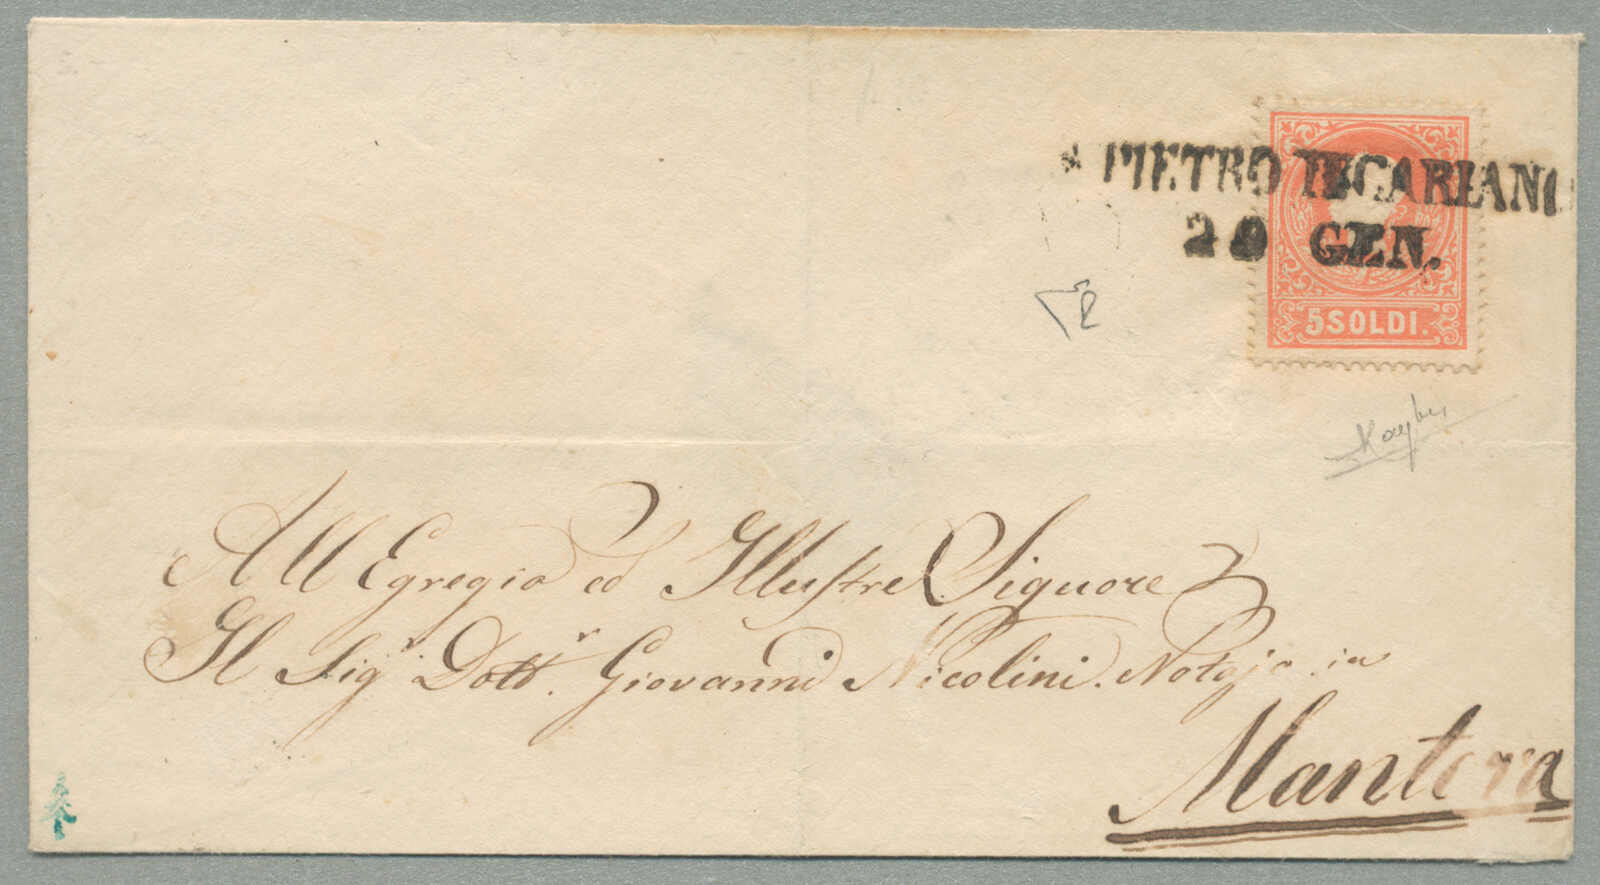 S. PIETRO INCARIANO
29 GEN.
5 SOLDI.
All Egregio ed Illustre Signore
Il Sigr. Dottr. Giovanni Nicolini. Notajo in
Mantova